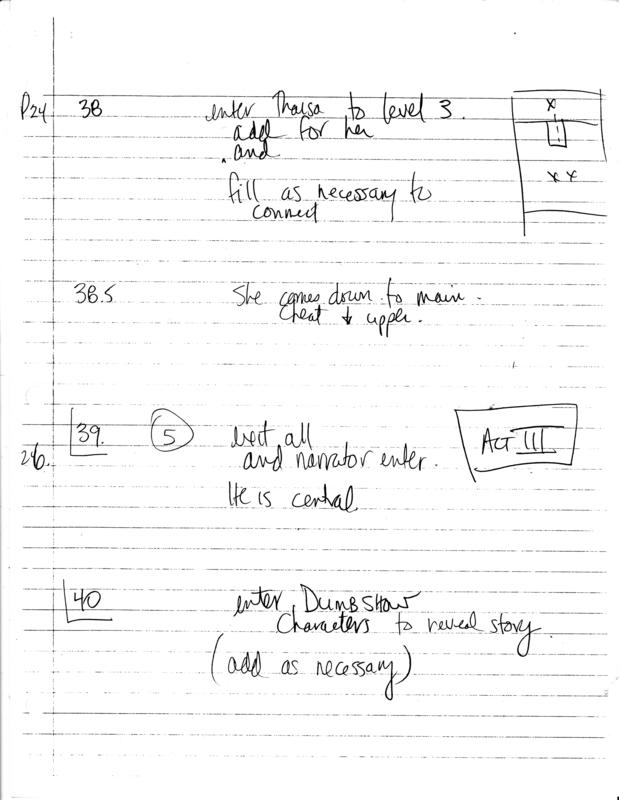 P24 38 enter Thaisa to level 3.
add for her
. and
fill as necessary to
connect
x
x x
38.5 She comes down to main.
cheat ↓ upper.
39. 5 exit all
ACT III
26. and narrator enter.
He is central
40 enter DUMBSHOW
characters to reveal story.
(add as necessary)